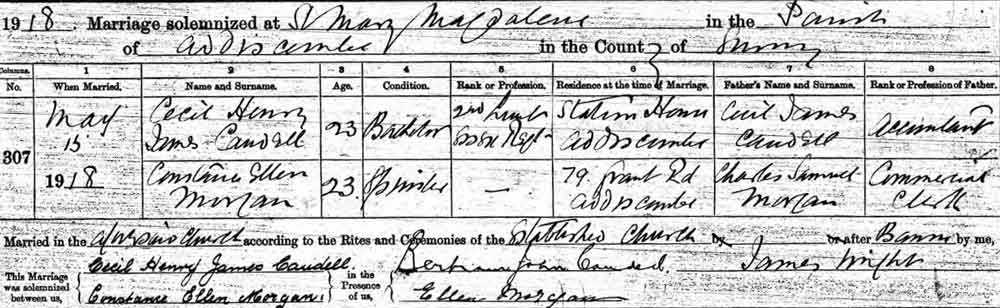 1918. Marriage solemnized at St Mary Magdalene in the Parish
of Addiscombe in the County of Surrey
Columns. 1 2 3 4 5 6 7 8
No. When Married. Name and Surname. Age. Condition. Rank or Profession. Residence at the time of Marriage. Father's Name and Surname. Rank or Profession of Father.
307
May
15
1918
Cecil Henry
James Caudell
23
Bachelor
2nd Lieut
Essex Regt
Station House
Addiscombe
Cecil James
Caudell
Accountant
Constance Ellen
Morgan
23
Spinster
—
79. Grant Rd
Addiscombe
Charles Samuel
Morgan
Commercial
Clerk
Married in the aforesaid Church according to the Rites and Ceremonies of the Established Church by or after Banns by me,
This Marriage
was solemnized
between us,
Cecil Henry James Caudell
Constance Ellen Morgan
in the
Presence
of us,
Bertram John Caudell
Ellen Morgan
James Wright